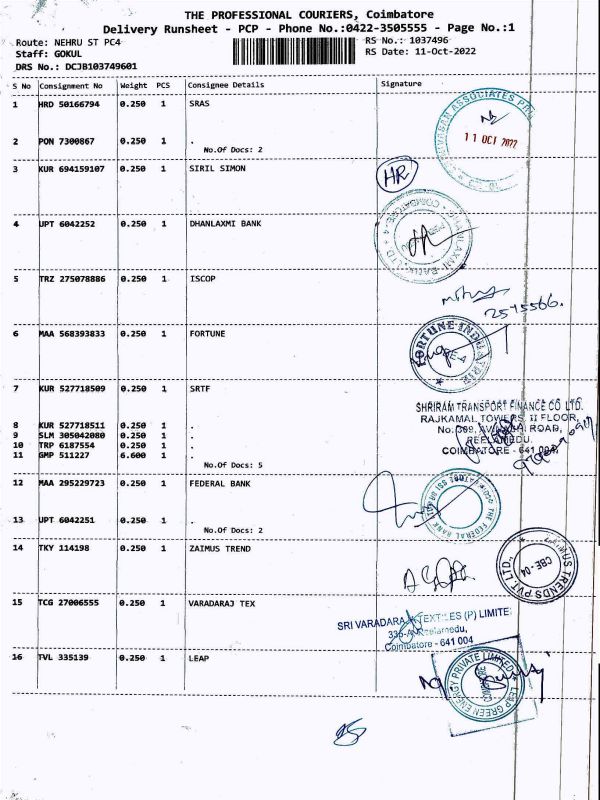 THE PROFESSIONAL COURIERS, Coimbatore
Delivery Runsheet - PCP - Phone No.:0422-3505555 - Page No.:1
Route: NEHRU ST PC4 RS No.: 1037496
Staff: GOKUL RS Date: 11-Oct-2022
DRS No.: DCJB103749601
S No Consignment No Weight PCS Consignee Details Signature
1 HRD 50166794 0.250 1 SRAS
ASSOCIATES
11 OCT 2022
2 PON 7300867 0.250 1 .
No.Of Docs: 2
3 KUR 694159107 0.250 1 SIRIL SIMON
HR
4 UPT 6042252 0.250 1 DHANLAXMI BANK
DHANLAXMI BANK LTD. COIMBATORE-4
5 TRZ 275078886 0.250 1 ISCOP
2515566.
6 MAA 568393833 0.250 1 FORTUNE
FORTUNE
7 KUR 527718509 0.250 1 SRTF
SHRIRAM TRANSPORT FINANCE CO LTD.
RAJKAMAL TOWERS, II FLOOR,
ROAD,
PEELAMEDU,
COIMBATORE - 641 004.
8 KUR 527718511 0.250 1 .
9 SLM 305042080 0.250 1 .
10 TRP 6187554 0.250 1 .
11 GMP 511227 6.600 1 .
No.Of Docs: 5
12 MAA 295229723 0.250 1 FEDERAL BANK
THE FEDERAL BANK
13 UPT 6042251 0.250 1 .
No.Of Docs: 2
14 TKY 114198 0.250 1 ZAIMUS TREND
TRENDS PVT. LTD.
CBE-04
15 TCG 27006555 0.250 1 VARADARAJ TEX
SRI VARADARAJA TEXTILES (P) LIMITE
Peelamedu,
Coimbatore - 641 004
16 TVL 335139 0.250 1 LEAP
LEAP GREEN ENERGY PRIVATE LIMITED